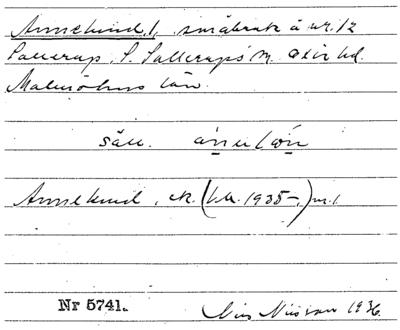 Annelund, 1, småbruk å nr. 12
Sallerup, S. Sallerups sn. Oxie hd.
Malmöhus län.
säll.
Annelund, ek. (bil. 1935–,) nr. 1
Nr 5741.
Nils Nilsson 1936.